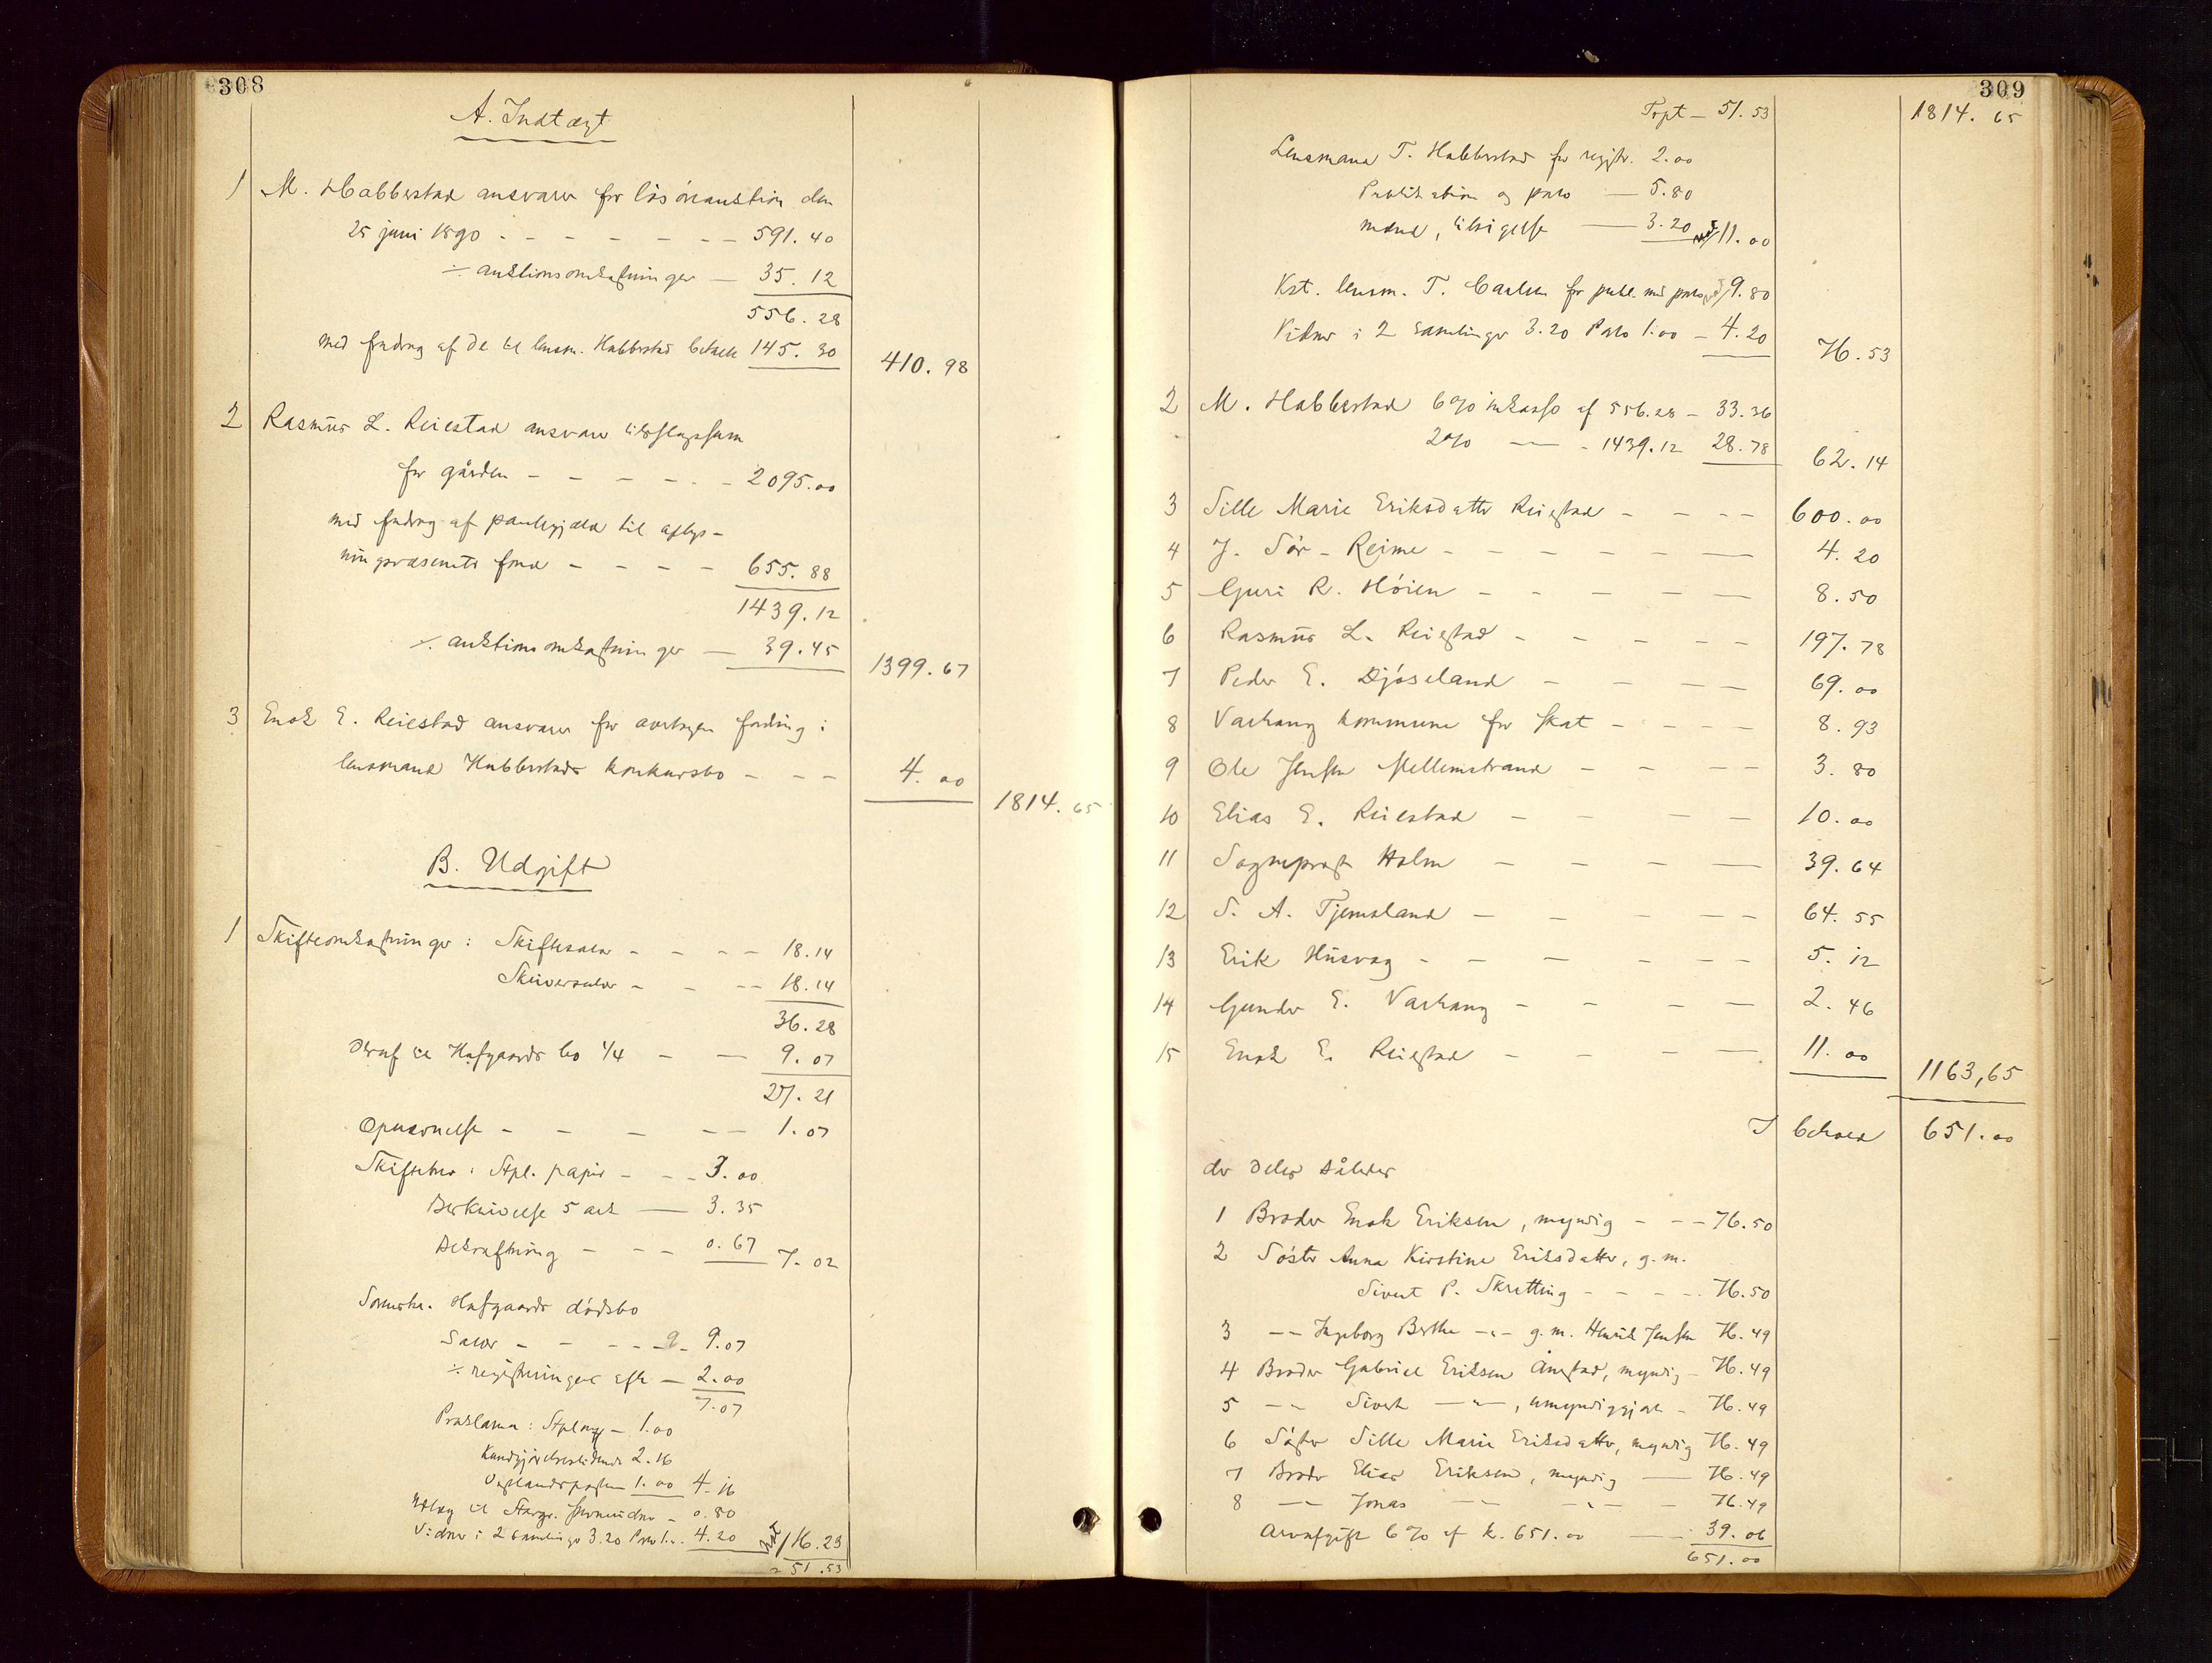 308
A. Indtægt
1 M. Habberstad ansvarer for løsøreauktion den
25 juni 1890 - - - - - - - 591.40
÷ auktionsomkostninger — 35.12
556.28
med fradrag af de til lensm. Habberstad betalte 145.30 410.98
2 Rasmus L. Reiestad ansvarer tilslagssum
for gården - - - - - - 2095.00
med fradrag af pantegjæld til oplys-
ningsvæsenets fond - - - - 655.88
1439.12
÷ auktionsomkostninger — 39.45 1399.67
3 Enok E. Reiestad ansvarer for overtagen fordring i
lensmand Habberstads konkursbo - - - 4.00
1814.65
B. Udgift
1 Skifteomkostninger: Skiftesalær - - - - 18.14
Skriversalær - - - - 18.14
36.28
Deraf til Hafgaards bo 1/4 - — 9.07
27.21
Opnævnelse - - - - - 1.07
Skiftebrev: Stpl. papir - - - 3.00
Beskrivelse 5 ark — 3.35
Bekræftning - - - 0.67 7.02
Sorenskr. Hafgaards dødsbo
Salær - - - - - 9.07
÷ registrering - 2.00
7.07
Proklama: Stplmrk — 1.00
Kundgjørelsestidende 2.16
Vestlandsposten 1.00 4.16
Udlæg til Stavgr. - 0.80
Vidner i 2 samlinger 3.20 Porto 1.00 4.20 16.23
51.53
309
Trpt — 51.53 1814.65
Lensmand T. Habberstad for registr. 2.00
Publikation og porto — 5.80
mænd, tilsigelse — 3.20 11.00
Kst. lensm. T. Carlsen for publ. med porto 9.80
Vidner i 2 samlinger 3.20 Porto 1.00 - 4.20 76.53
2 M. Habberstad 6% inkasso af 556.28 - 33.36
2% — - 1439.12 28.78 62.14
3 Sille Marie Eriksdatter Reiestad - - - - 600.00
4 J. Sør-Reime - - - - - — 4.20
5 Guri R. Høien - - - - — 8.50
6 Rasmus L. Reiestad - - - - — 197.78
7 Peder E. Djøseland - - - — 69.00
8 Varhaug kommune for skat - - - - 8.93
9 Ole Jensen Mellemstrand - - - - 3.80
10 Elias E. Reiestad - - - - 10.00
11 Sogneprest Holm - - - — 39.64
12 S. A. Tjemsland - - - - - 64.55
13 Erik Husvæg - - - - - - 5.12
14 Gunder E. Varhaug - - - — 2.46
15 Enok E. Reiestad - - - — 11.00
1163,65
I behold 651.00
der deles således
1 Broder Enok Eriksen, myndig - - - 76.50
2 Søster Anna Kirstine Eriksdatter, g.m.
Sivert P. Skretting - - - - 76.50
3 -- Ingeborg Berthe -"- g.m. Henrik Jensen 76.49
4 Broder Gabriel Eriksen Ånestad, myndig - 76.49
5 -- Sivert -"-, umyndiggjort - 76.49
6 Søster Sille Marie Eriksdatter, myndig 76.49
7 Broder Elias Eriksen, myndig — 76.49
8 -- Jonas -- -"- - 76.49
Arveafgift 6% af k. 651.00 — 39.06
651.00